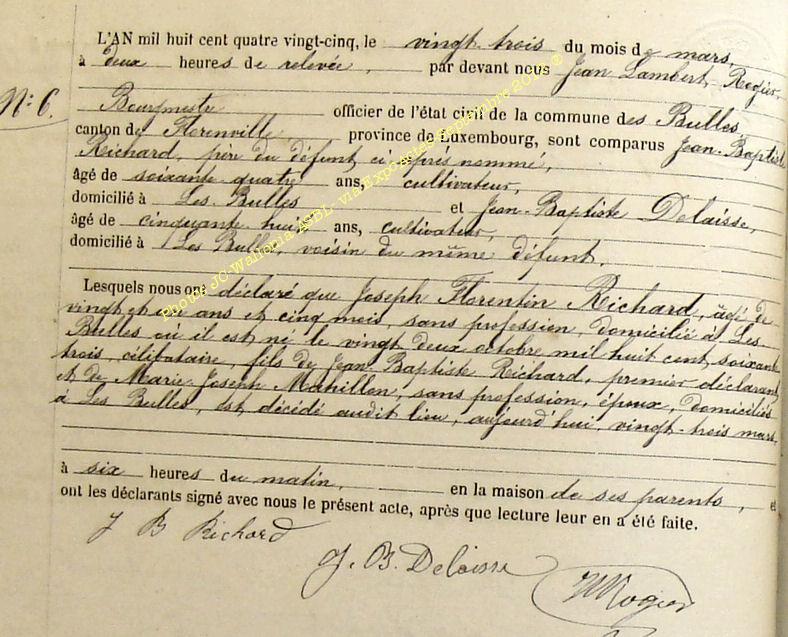 L'AN mil huit cent quatre vingt-cinq, le vingt-trois du mois de mars,
à deux heures de relevée, par devant nous Jean Lambert Rogier,
N° 6.
Bourgmestre officier de l'état civil de la commune des Bulles,
canton de Florenville province de Luxembourg, sont comparus Jean-Baptiste
Richard, père du défunt ci après nommé,
âgé de soixante quatre ans, cultivateur,
domicilié à Les Bulles et Jean-Baptiste Delaisse,
âgé de cinquante huit ans, cultivateur,
domicilié à Les Bulles, voisin du même défunt.
Lesquels nous ont déclaré que Joseph Florentin Richard, âgé de
vingt et un ans et cinq mois, sans profession, domicilié à Les
Bulles où il est né le vingt deux octobre mil huit cent soixante
trois, célibataire, fils de Jean-Baptiste Richard, premier déclarant
et de Marie-Joseph Mahillon, sans profession, époux, domiciliés
à Les Bulles, est décédé audit lieu, aujourd'hui vingt-trois mars,
à six heures du matin, en la maison de ses parents, et
ont les déclarants signé avec nous le présent acte, après que lecture leur en a été faite.
J B Richard
J. B. Delaisse
Rogier
Photos JC Wallonia ASBL via ExpoActes septembre 2012 ®